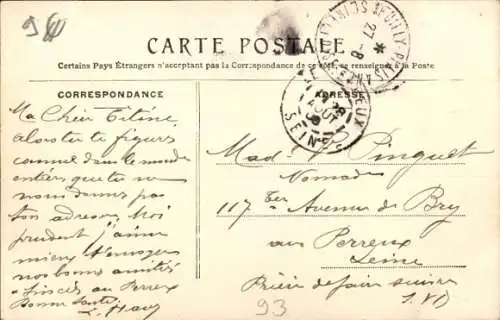 CARTE POSTALE
Certains Pays Étrangers n'acceptant pas la Correspondance de ce côté, se renseigner à la Poste
CORRESPONDANCE
ADRESSE
Ma Chère Titine
alors tu te figures
comme dans le monde
entier que tu ne
nous donnes pas
ton adresse, Moi
prudent j'aime
mieux t'envoyer
nos bonnes amitiés
sincères au Perreux
Bonne Santé
27 -8
AOUT
SEINE
Mad. V. Pinguet
Nomade
117 ter Avenue de Bry
au Perreux
Seine
Prière de faire suivre
S.V.P
93